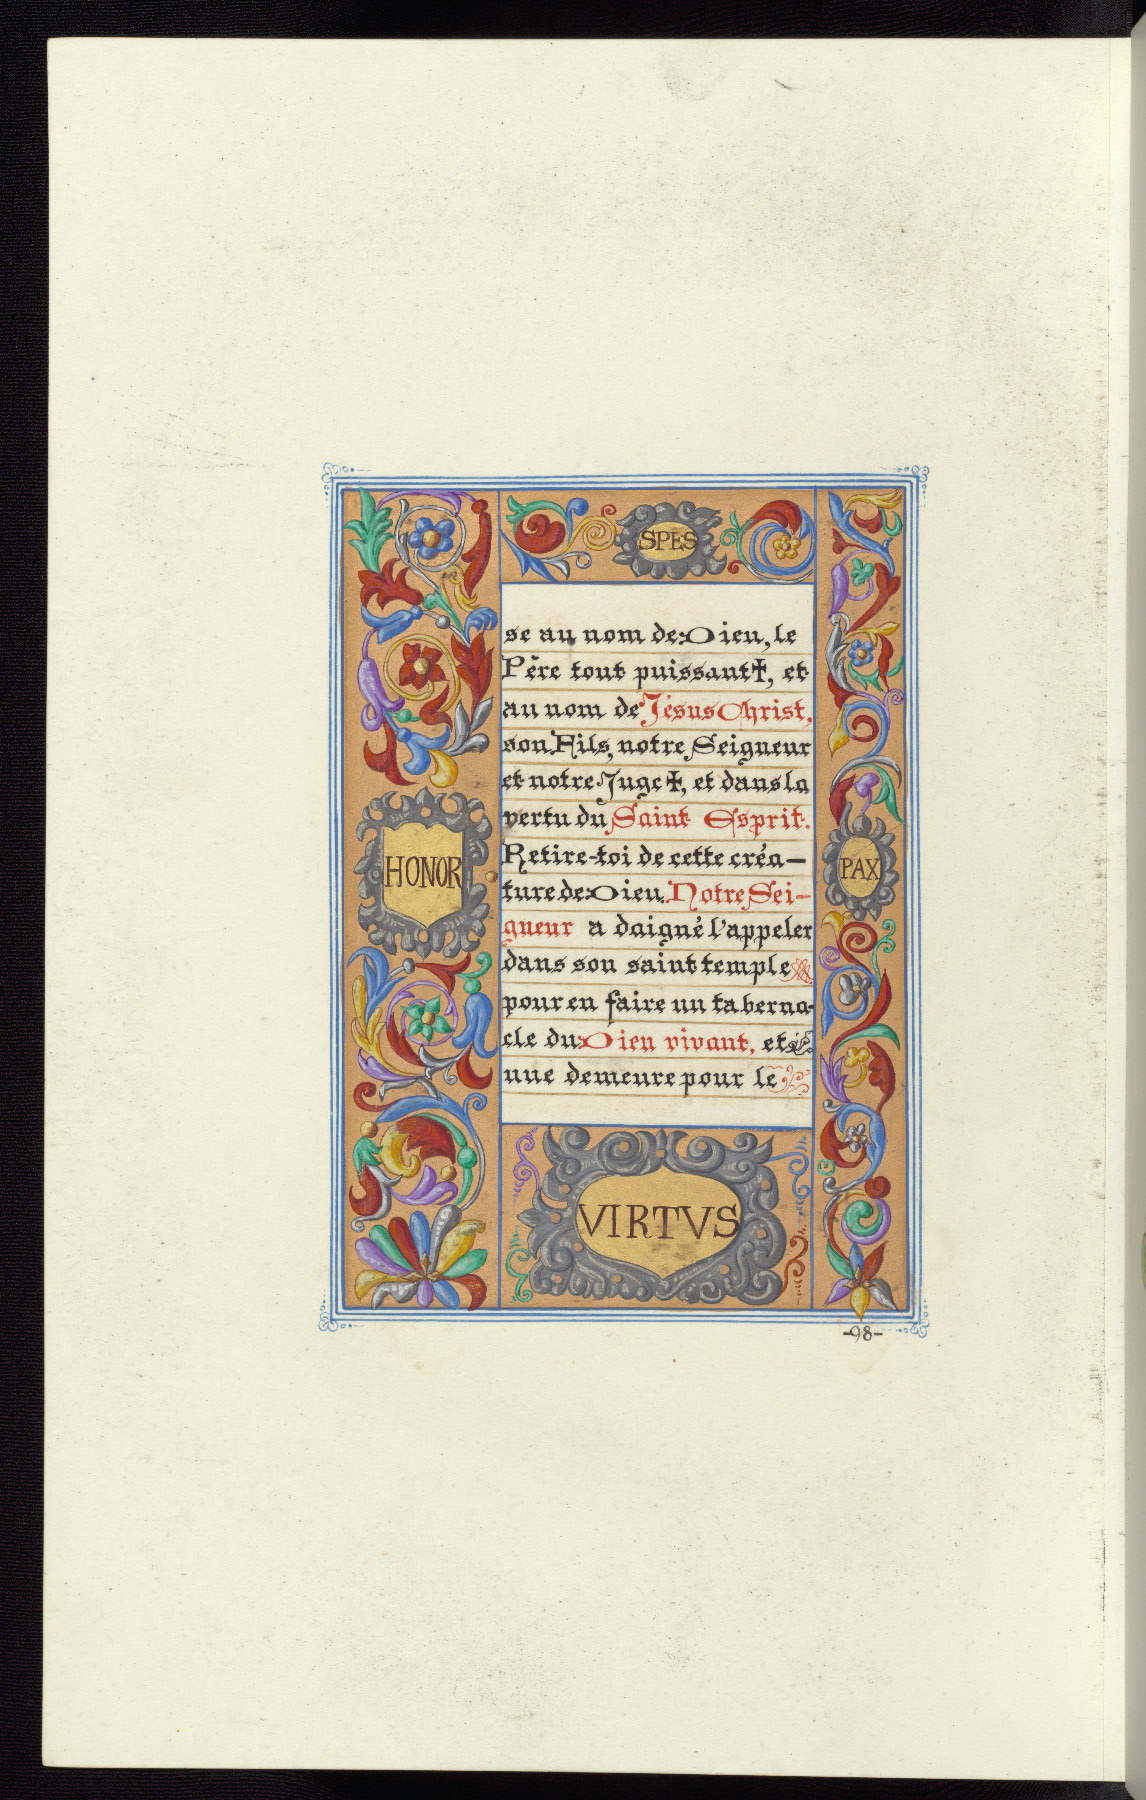 SPES
se au nom de Dieu, le
Père tout puissant ✝, et
au nom de Jésus Christ,
son Fils, notre Seigneur
et notre Juge ✝, et dans la
vertu du Saint Esprit.
Retire-toi de cette créa-
ture de Dieu. Notre Sei-
gneur a daigné l'appeler
dans son saint temple
pour en faire un taberna-
cle du Dieu vivant, et
une demeure pour le
HONOR
PAX
VIRTVS
-98-